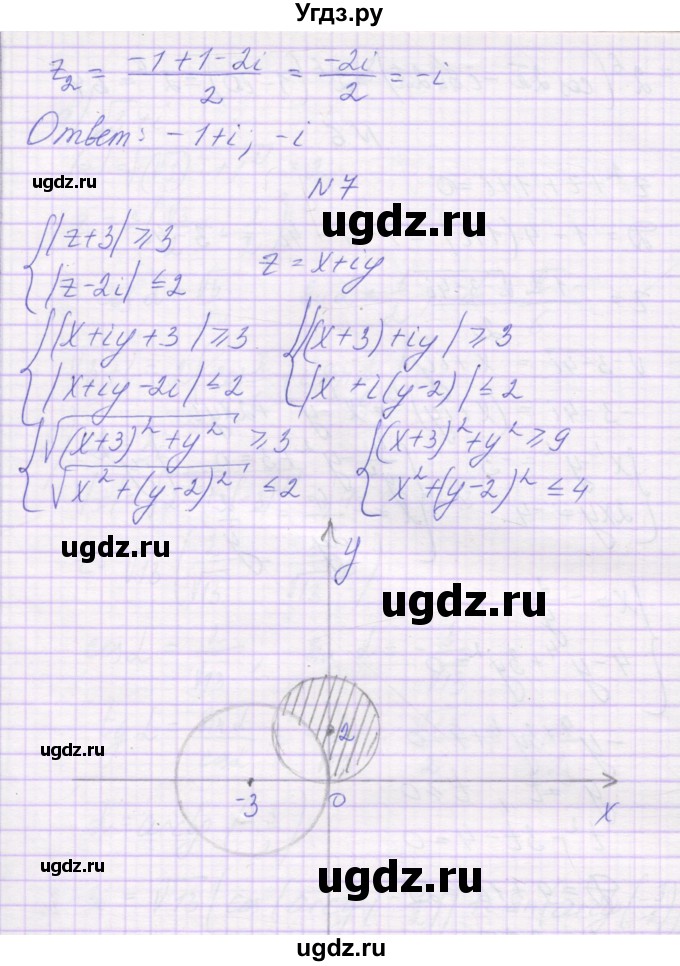 Угдз.ру
z₂ = (-1+1-2i)/2 = (-2i)/2 = -i
Ответ: -1+i; -i
ugdz.ru
N7
ugdz.ru
{ |z+3| ⩾ 3
{ |z-2i| ≤ 2
z = x+iy
{ |x+iy+3| ⩾ 3
{ |x+iy-2i| ≤ 2
{ |(x+3)+iy| ⩾ 3
{ |x+i(y-2)| ≤ 2
{ √((x+3)²+y²) ⩾ 3
{ √(x²+(y-2)²) ≤ 2
{ (x+3)²+y² ⩾ 9
{ x²+(y-2)² ≤ 4
ugdz.ru
y
ugdz.ru
2
ugdz.ru
-3
0
x
ugdz.ru
ugdz.ru
ugdz.ru